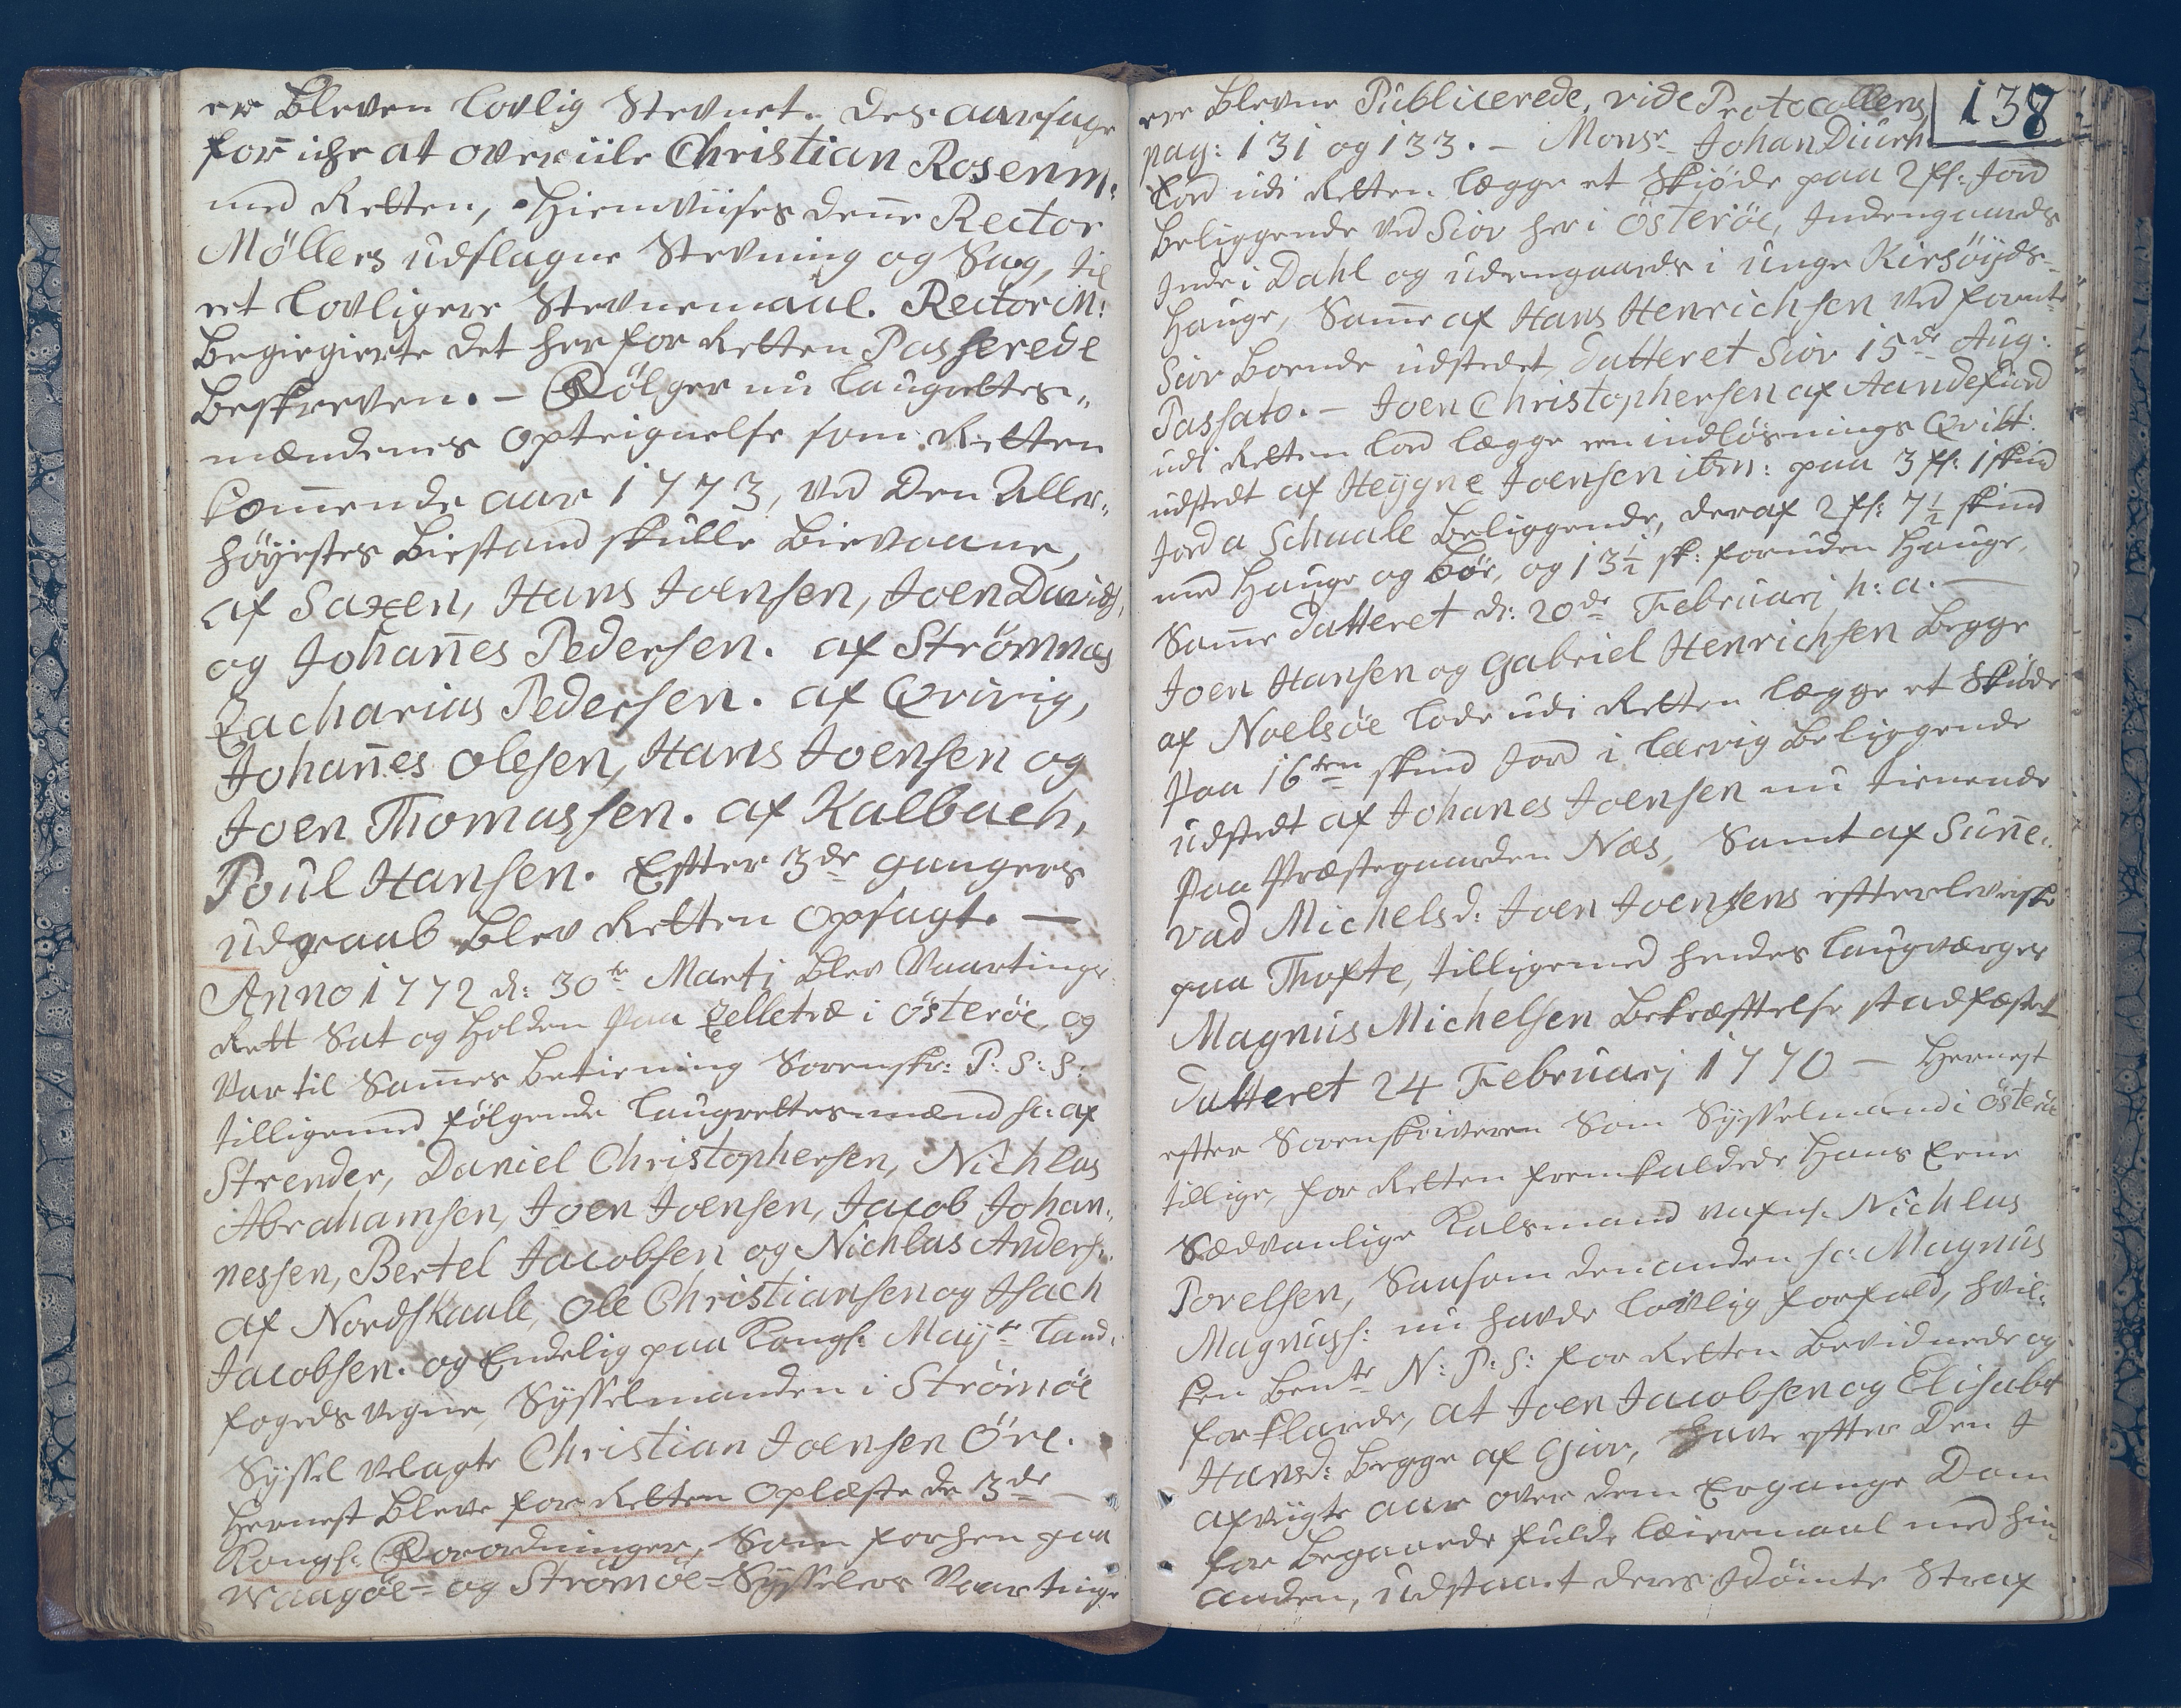 er bleven lovlig Stevnet. Des aarsage
for iche at overiile Christian Rosenm:
med Retten, Hiemviises denne Rector
Möllers udtagne Stevning og Sag, til
et lovligere Stevnemaal. Rector M:
begiergierte det her for Retten Passerede
beskreven. – Følger nu laugrettes-
mændenes Opteignelse som Retten
kom̄ende aar 1773, ved Den Aller-
höyestes biestand skulle bievaane,
af Saxen, Hans Joensen, Joen Davids:
og Johan̄es Pedersen. af Strömnæs
Zacharias Pedersen. af Qvivig,
Johan̄es Olesen, Hans Joensen og
Joen Thomassen. af Kalbach,
Poul Hansen. Efter 3de ganges
udraab blev Retten opsagt. —
Anno 1772 d: 30te Martj blev Vaartings
Rett Sat og holden paa Zelletræ i österöe, og
var til Sam̄es betiening Sorenskr: P: S: S:
tilligemed følgende laugrettesmænd sc: af
Strender, Daniel Christophersen, Nichlas
Abrahamsen, Joen Joensen, Jacob Johan-
nessen, Bertel Jacobsen og Nichlas Anders:
af Nordskaale, Ole Christiansen og Isach
Jacobsen. og Endelig paa Kongl: Mayts Land-
fogeds vegne, Sysselmanden i Strömöe
Syssel velagte Christian Joensen Öre.
Hernest bleve for Retten Oplæste de 3de
Kongl: Forordninger, Som forhen paa
Waagöe- og Strömöe-Sysselers Vaartinge
ere blevne Publicerede, vide Protocollens
138
pag: 131 og 133. – Monsr Johan Diurh
lod udi Retten lægge et Skiöde paa 2 fl: Jord
beliggende ved Siov her i österöe, Indengaards
Inde i Dahl og udengaards i unge Kirsöyds-
Hauge, Sam̄e af Hans Henrichsen ved forvnte
Siov boende udstedet, Datteret Siov 15de Aug:
Passato. – Joen Christophersen af Aandefiord
udi Retten lod lægge een indlösnings Qvitt:
udstedt af Heygne Joensen ibm: paa 3 fl: 1 skind
Jord a Schaale beliggende, deraf 2 fl: 7½ skind
med Hauge og bör, og 13½ sk: foruden Hauge,
Sam̄e Datteret d: 20de Februarj h: a. —
Joen Hansen og Gabriel Henrichsen begge
af Noelsöe lode udi Retten lægge et Skiöde
paa 16ten skind Jord i Lervig beliggende
udstedt af Johanes Joensen nu tienende
paa Præstegaarden Næs, Samt af Sun̄e-
vad Michelsd: Joen Joensens efterleverske
paa Thofte, tilligemed hendes laugværges
Magnus Michelsen bekræftelse stadfæstet
Datteret 24 Februarj 1770 – Hernest
efter Sorenskriveren Som Sysselmand i österöe
tillige, for Retten fremkaldede Hans Eene
Sædvanlige Kalsmand nafnl. Nichlas
Povelsen, Saasom den anden sc: Magnus
Magnuss: nu havde lovlig forfald, hvil-
ken bente N: P: S: for Retten bevidnede og
forklarede, at Joen Jacobsen og Elisabet
Hansd: begge af Giov, have efter Den I
afvigte aar over dem Ergangne Dom
for begaaede fulde leiermaal med hin-
anden, udstaaet deres Idömte Straf